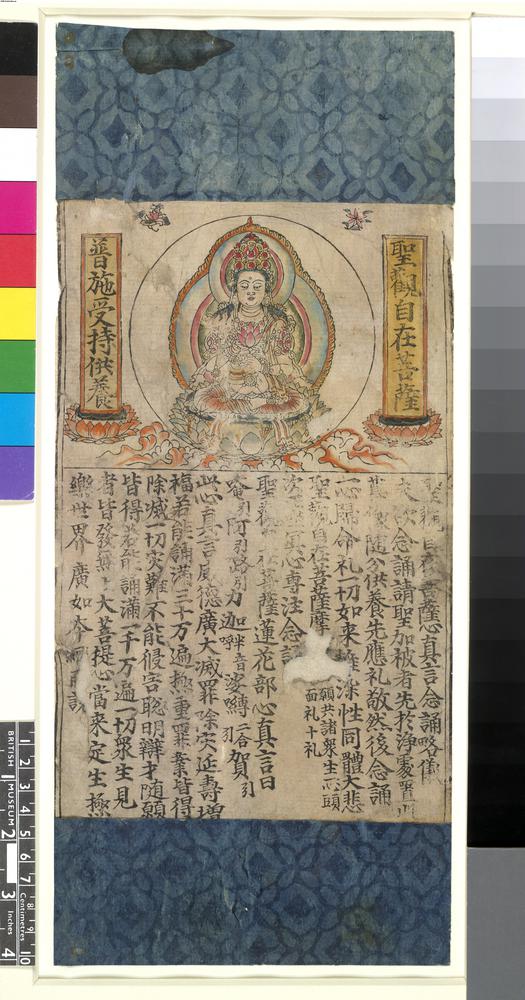 聖觀自在菩薩
普施受持供養
聖觀自在菩薩心真言念誦略儀
夫欲念誦請聖加被者先於淨處置此
尊像隨分供養先應礼敬然後念誦
一心歸命礼一切如来離染性同體大悲
聖觀自在菩薩摩 願共諸衆生一心頭
面礼十礼
次應冥心專注念誦
聖觀自在菩薩蓮花部心真言曰
唵引阿引嚕引力迦半音呼娑嚩二合引賀引
此心真言威德廣大滅罪除灾延壽增
福若能誦滿三十万遍極重罪業皆得
除滅一切灾難不能侵害聡明辯才隨願
皆得若能誦滿一千万遍一切衆生見
者皆發無上大菩提心當来定生極
樂世界廣如本經所説
BRITISH MUSEUM
1 2 3 4 5 6 7 8 9 10
Centimetres
1 2 3 4
Inches